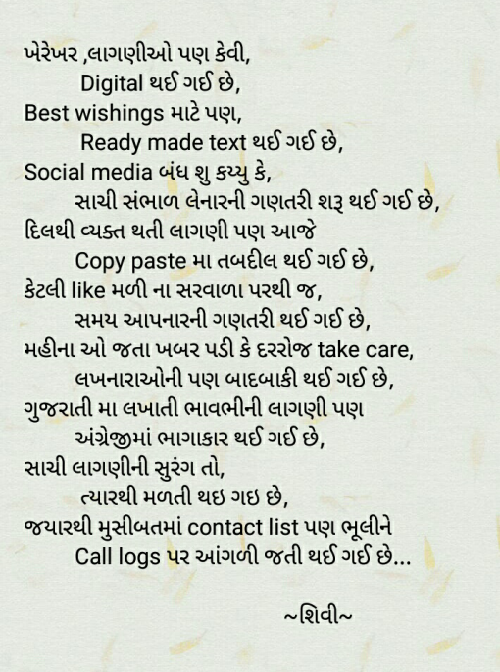 ખેરેખર ,લાગણીઓ પણ કેવી,
Digital થઈ ગઈ છે,
Best wishings માટે પણ,
Ready made text થઈ ગઈ છે,
Social media બંધ શુ કય્યુ કે,
સાચી સંભાળ લેનારની ગણતરી શરૂ થઈ ગઈ છે,
દિલથી વ્યક્ત થતી લાગણી પણ આજે
Copy paste મા તબદીલ થઈ ગઈ છે,
કેટલી like મળી ના સરવાળા પરથી જ,
સમય આપનારની ગણતરી થઈ ગઈ છે,
મહીના ઓ જતા ખબર પડી કે દરરોજ take care,
લખનારાઓની પણ બાદબાકી થઈ ગઈ છે,
ગુજરાતી મા લખાતી ભાવભીની લાગણી પણ
અંગ્રેજીમાં ભાગાકાર થઈ ગઈ છે,
સાચી લાગણીની સુરંગ તો,
ત્યારથી મળતી થઇ ગઇ છે,
જયારથી મુસીબતમાં contact list પણ ભૂલીને
Call logs પર આંગળી જતી થઈ ગઈ છે...
~શિવી~